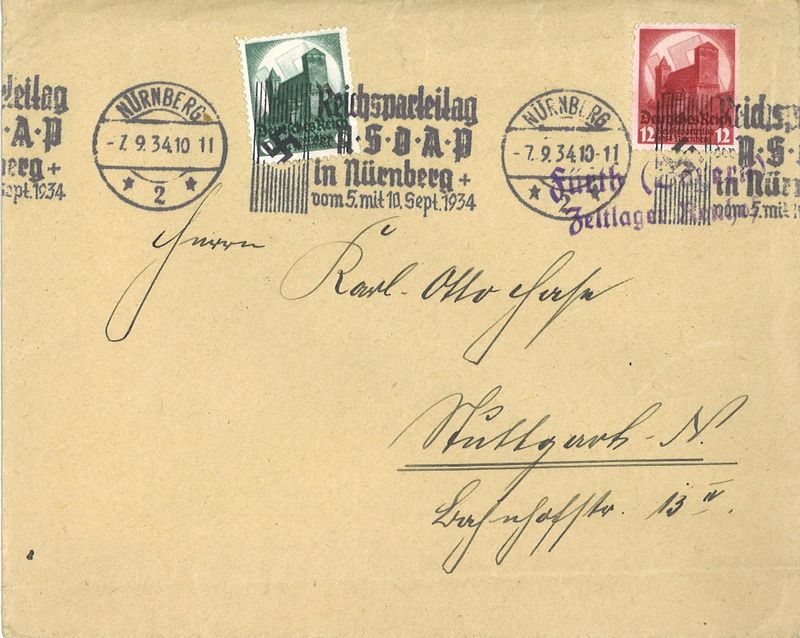 rteitag
S·D·A·P
berg +
Sept. 1934
NÜRNBERG
-7.9.34.10 11
2
Reichsparteitag
N·S·D·A·P
in Nürnberg +
vom 5. mit 10. Sept. 1934
Deutsches Reich
NÜRNBERG
-7.9.34.10-11
2
Deutsches Reich
12 12
Reichsp
N·S·D
in Nür
vom 5. mit 1
Fürth
Zeltlager
Herrn
Karl-Otto Hase
Stuttgart-N.
Bahnhofstr. 13 IV.